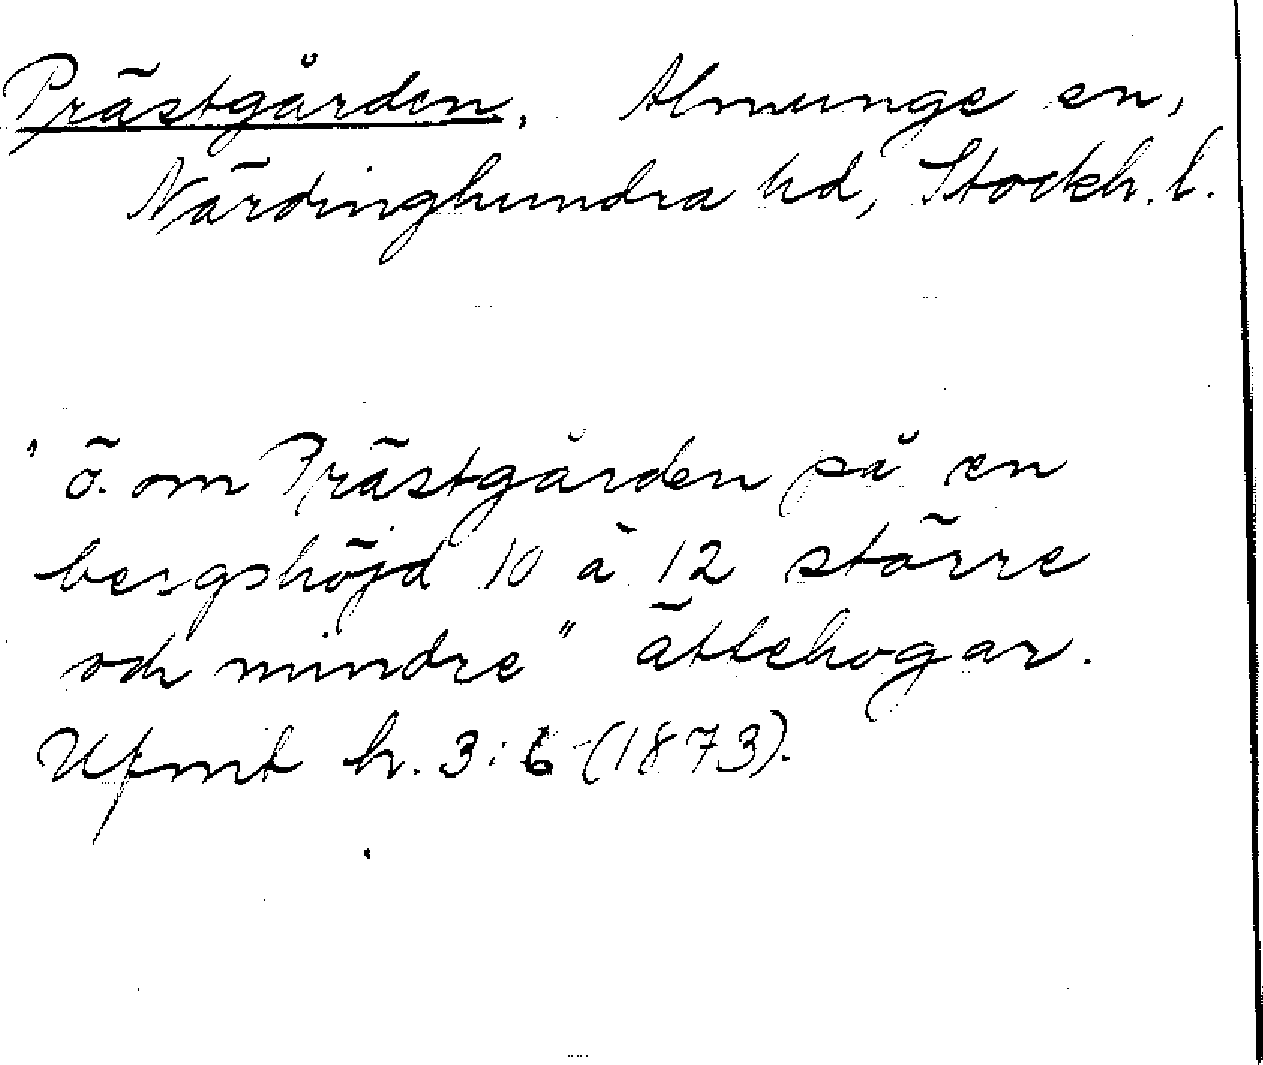 Prästgården, Almunge sn,
Närdinghundra hd, Stockh. l.
"ö. om Prästgården på en
bergshöjd 10 à 12 större
och mindre" ättehogar.
Ufmt h. 3:6 (1873).